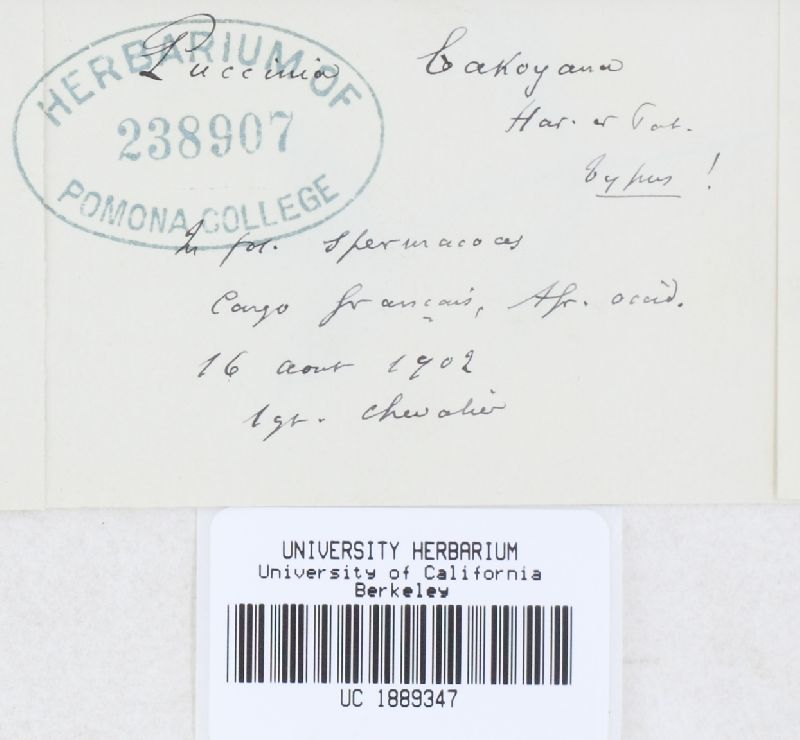 HERBARIUM OF
238907
POMONA COLLEGE
Puccinia Cakoyana
Har. et Pat.
typus !
In fol. Spermacoces
Congo français, Afr. occid.
16 aout 1902
lgt. Chevalier
UNIVERSITY HERBARIUM
University of California
Berkeley
UC 1889347